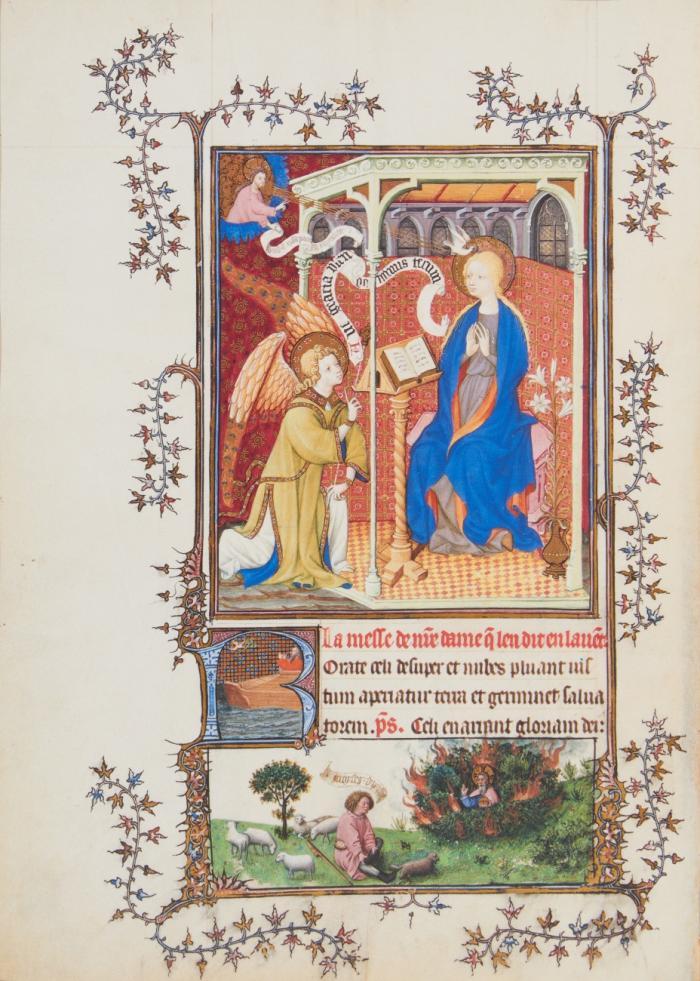 gracia plena
dominus tecum
La messe de nr̃e dame q̃ len dit en lauẽt.
Rorate celi desuper et nubes pluant ius
tum aperiatur terra et germinet salua
torem. p̃s. Celi enarrant gloriam dei: